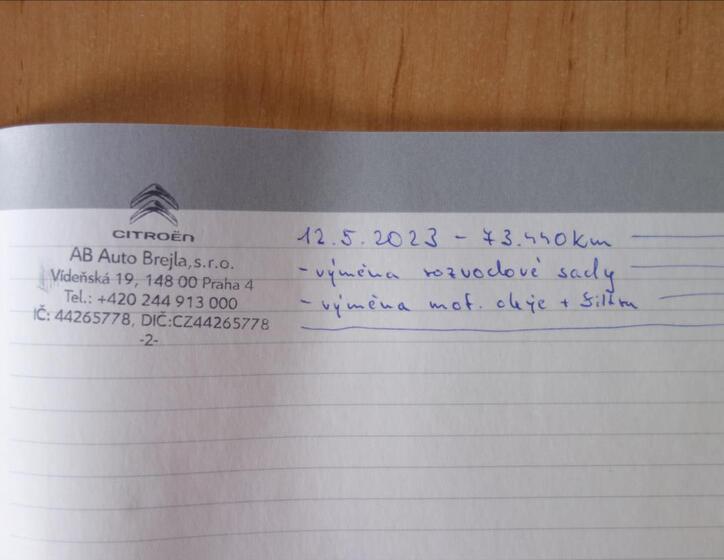 CITROËN
AB Auto Brejla, s.r.o.
Vídeňská 19, 148 00 Praha 4
Tel.: +420 244 913 000
IČ: 44265778, DIČ:CZ44265778
-2-
12.5.2023 - 73.440km
- výměna rozvodové sady
- výměna mot. oleje + filtru